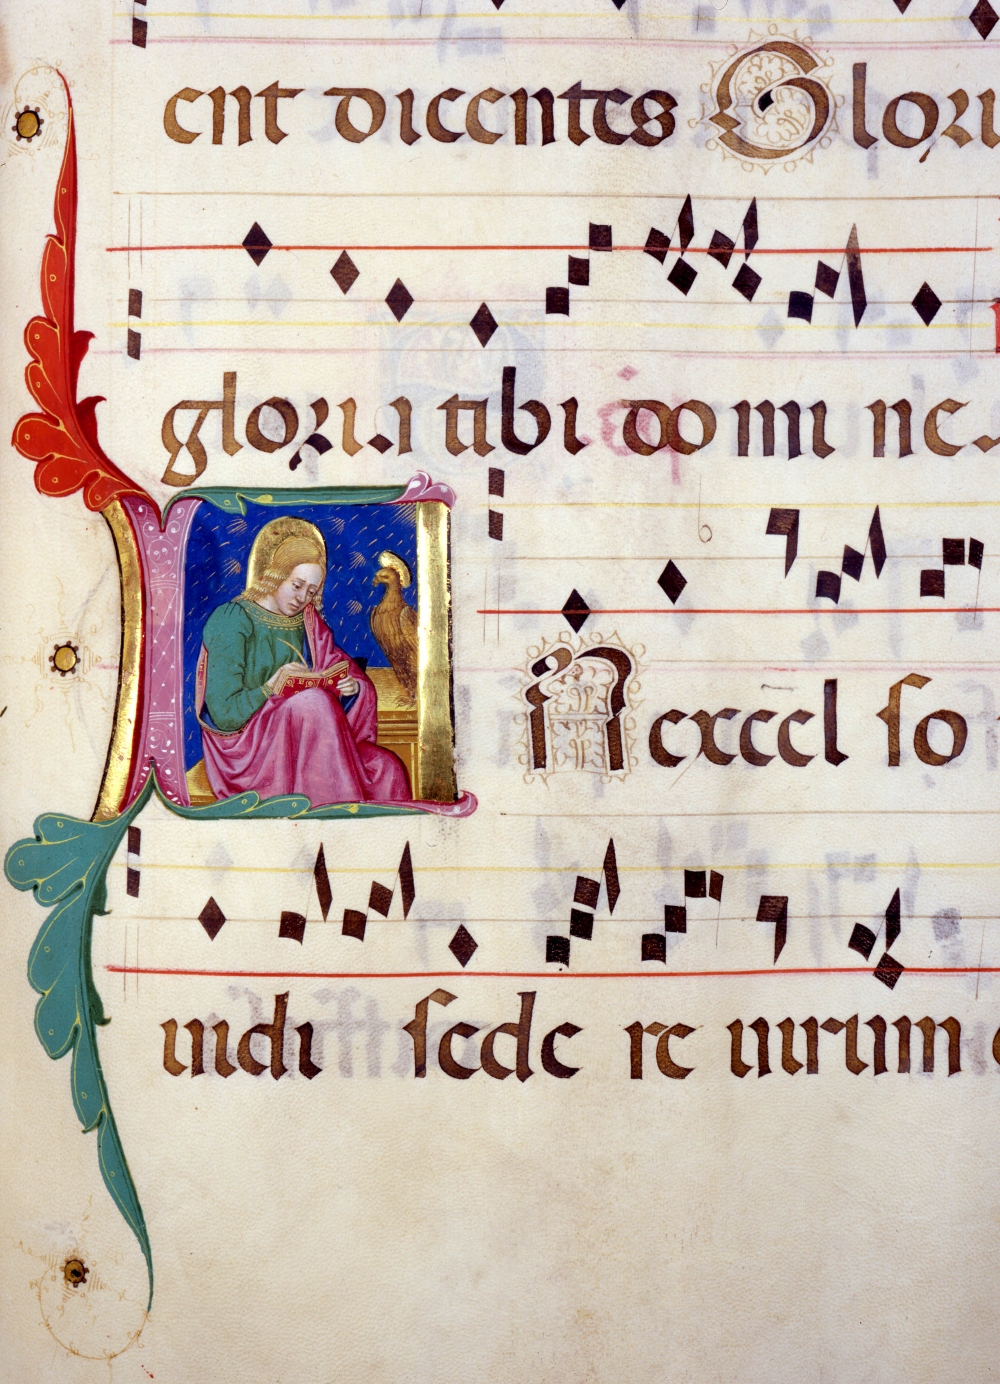 ent dicentes Glori
gloria tibi domine
In excelso
uidi sedere uirum